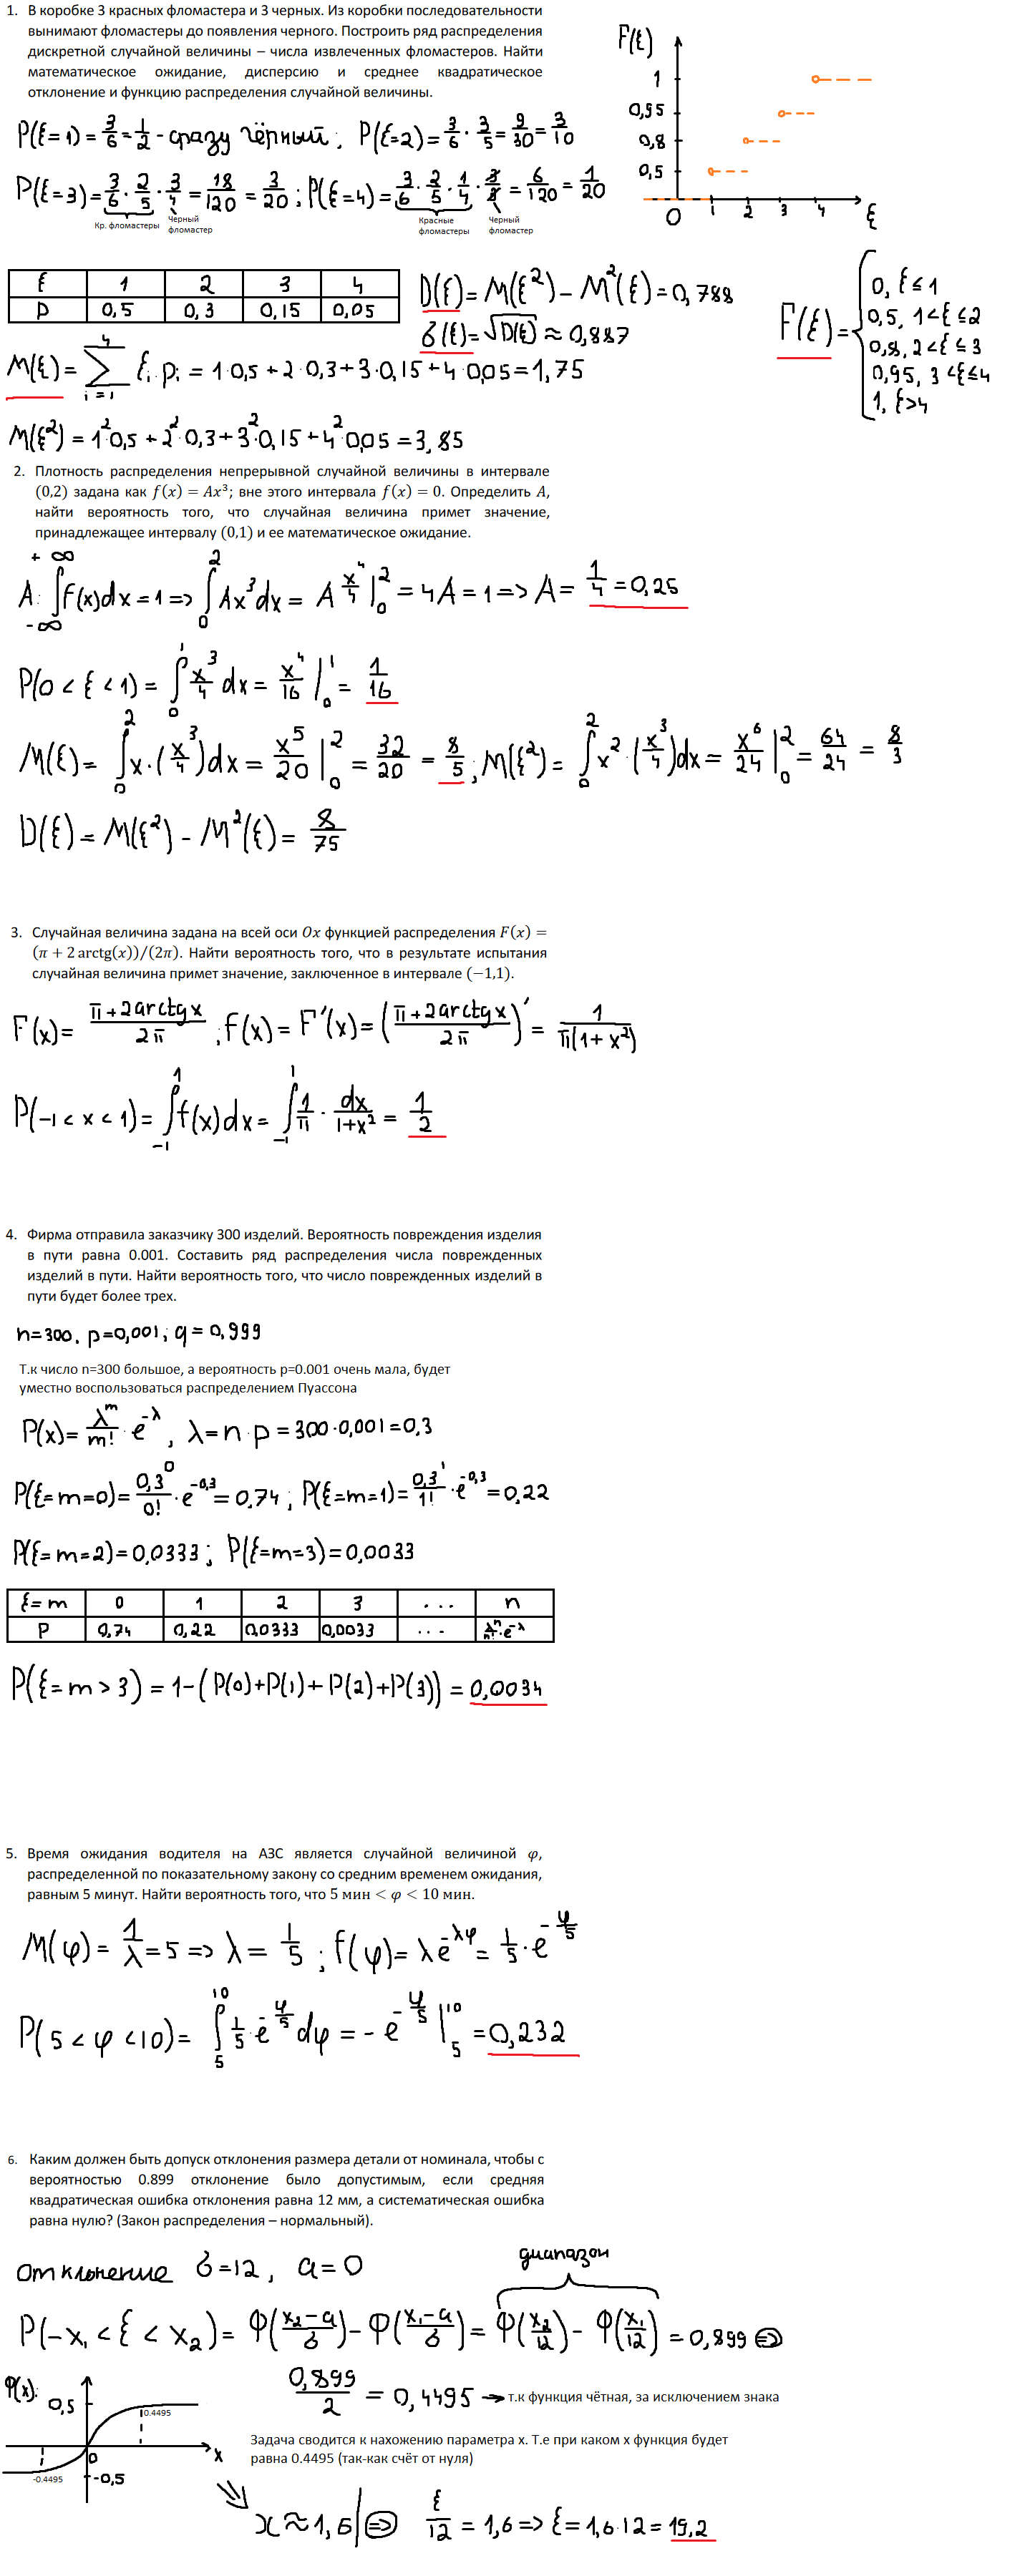 1. В коробке 3 красных фломастера и 3 черных. Из коробки последовательности
вынимают фломастеры до появления черного. Построить ряд распределения
дискретной случайной величины – числа извлеченных фломастеров. Найти
математическое ожидание, дисперсию и среднее квадратическое
отклонение и функцию распределения случайной величины.
P(ξ=1) = 3/6 = 1/2 - сразу чёрный; P(ξ=2) = 3/6 · 3/5 = 9/30 = 3/10
P(ξ=3) = 3/6 · 2/5 · 3/4 = 18/120 = 3/20; P(ξ=4) = 3/6 · 2/5 · 1/4 · 3/3 = 6/120 = 1/20
Кр. фломастеры Черный фломастер Красные фломастеры Черный фломастер
F(ξ)
1
0,95
0,8
0,5
0 1 2 3 4 ξ
ξ 1 2 3 4
P 0,5 0,3 0,15 0,05
D(ξ) = M(ξ²) - M²(ξ) = 0,788
б(ξ) = √D(ξ) ≈ 0,887
F(ξ) = { 0, ξ ≤ 1
0,5, 1 < ξ ≤ 2
0,8, 2 < ξ ≤ 3
0,95, 3 < ξ ≤ 4
1, ξ > 4
M(ξ) = ∑ i=1 4 ξi · pi = 1·0,5 + 2·0,3 + 3·0,15 + 4·0,05 = 1,75
M(ξ²) = 1²·0,5 + 2²·0,3 + 3²·0,15 + 4²·0,05 = 3,85
2. Плотность распределения непрерывной случайной величины в интервале
(0,2) задана как f(x) = Ax³; вне этого интервала f(x) = 0. Определить A,
найти вероятность того, что случайная величина примет значение,
принадлежащее интервалу (0,1) и ее математическое ожидание.
A: ∫ -∞ +∞ f(x)dx = 1 => ∫ 0 2 Ax³dx = A x⁴/4 | 0 2 = 4A = 1 => A = 1/4 = 0,25
P(0 < ξ < 1) = ∫ 0 1 x³/4 dx = x⁴/16 | 0 1 = 1/16
M(ξ) = ∫ 0 2 x·(x³/4)dx = x⁵/20 | 0 2 = 32/20 = 8/5; M(ξ²) = ∫ 0 2 x²·(x³/4)dx = x⁶/24 | 0 2 = 64/24 = 8/3
D(ξ) = M(ξ²) - M²(ξ) = 8/75
3. Случайная величина задана на всей оси Ox функцией распределения F(x) =
(π + 2 arctg(x))/(2π). Найти вероятность того, что в результате испытания
случайная величина примет значение, заключенное в интервале (−1,1).
F(x) = (π+2arctgx)/2π; f(x) = F'(x) = ((π+2arctgx)/2π)' = 1/(π(1+x²))
P(-1 < x < 1) = ∫ -1 1 f(x)dx = ∫ -1 1 1/π · dx/(1+x²) = 1/2
4. Фирма отправила заказчику 300 изделий. Вероятность повреждения изделия
в пути равна 0.001. Составить ряд распределения числа поврежденных
изделий в пути. Найти вероятность того, что число поврежденных изделий в
пути будет более трех.
n=300, p=0,001; q=0,999
Т.к число n=300 большое, а вероятность p=0.001 очень мала, будет
уместно воспользоваться распределением Пуассона
P(x) = λ^m/m! · e^-λ, λ = n·p = 300·0,001 = 0,3
P(ξ=m=0) = 0,3⁰/0! · e^-0,3 = 0,74; P(ξ=m=1) = 0,3¹/1! · e^-0,3 = 0,22
P(ξ=m=2) = 0,0333; P(ξ=m=3) = 0,0033
ξ=m 0 1 2 3 ... n
P 0,74 0,22 0,0333 0,0033 ... λ^n/n! · e^-λ
P(ξ=m > 3) = 1 - (P(0)+P(1)+P(2)+P(3)) = 0,0034
5. Время ожидания водителя на АЗС является случайной величиной φ,
распределенной по показательному закону со средним временем ожидания,
равным 5 минут. Найти вероятность того, что 5 мин < φ < 10 мин.
M(φ) = 1/λ = 5 => λ = 1/5; f(φ) = λe^-λφ = 1/5 · e^-φ/5
P(5 < φ < 10) = ∫ 5 10 1/5 · e^-φ/5 dφ = - e^-φ/5 | 5 10 = 0,232
6. Каким должен быть допуск отклонения размера детали от номинала, чтобы с
вероятностью 0.899 отклонение было допустимым, если средняя
квадратическая ошибка отклонения равна 12 мм, а систематическая ошибка
равна нулю? (Закон распределения – нормальный).
отклонение б=12, a=0
диапазон
P(-x₁ < ξ < x₂) = Φ((x₂-a)/б) - Φ((x₁-a)/б) = Φ(x₂/12) - Φ(x₁/12) = 0,899 =>
0,899/2 = 0,4495 → т.к функция чётная, за исключением знака
Φ(x): 0,5 0.4495
0 x
-0.4495 -0,5
Задача сводится к нахожению параметра x. Т.е при каком x функция будет
равна 0.4495 (так-как счёт от нуля)
x ≈ 1,6 | => ξ/12 = 1,6 => ξ = 1,6·12 = 19,2